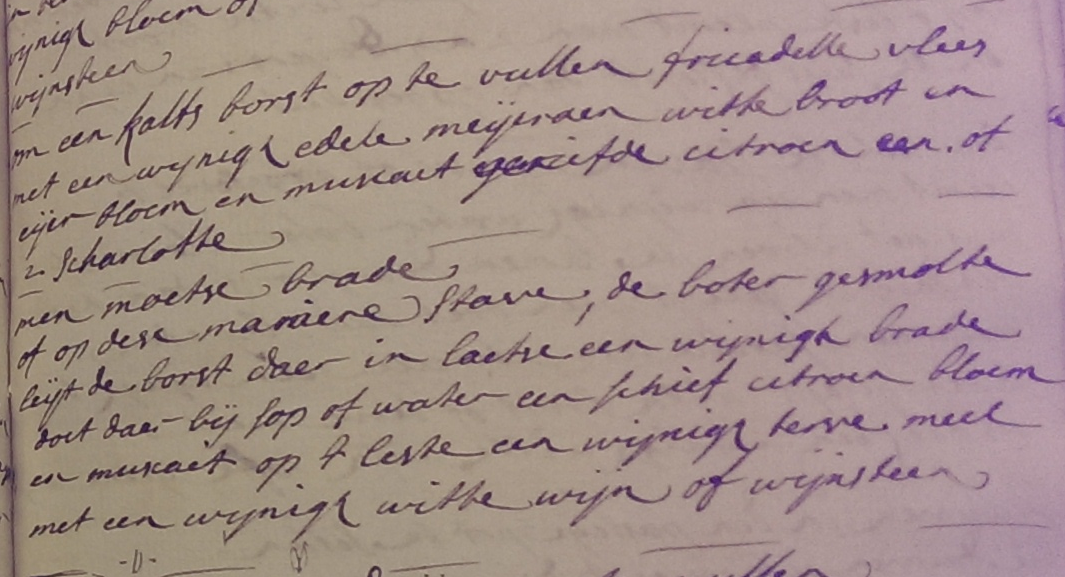 wijnigh bloem of
wijnsteen
om een kalfs borst op te vullen fricadelle vlees
met een wijnigh edele meijeraen witte broot en
eijer bloem en muscaet geriefde citroen een of
2 Scharlotte
men moetse brade
of op dese maniere Stave, de boter gesmolte
leijt de borst daer in laetse een wijnigh brade
doet daer bij sop of water een schief citroen bloem
en muscaet op t leste een wijnigh terve meel
met een wijnigh witte wijn of wijnsteen